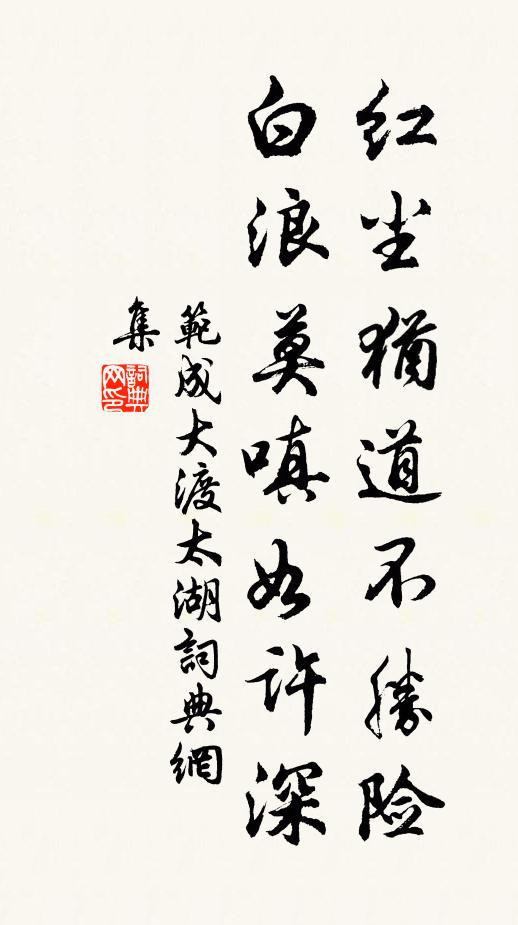 红尘犹道不勝险
白浪莫嗔如许深
範成大渡太湖詞典網
集
詞典网印